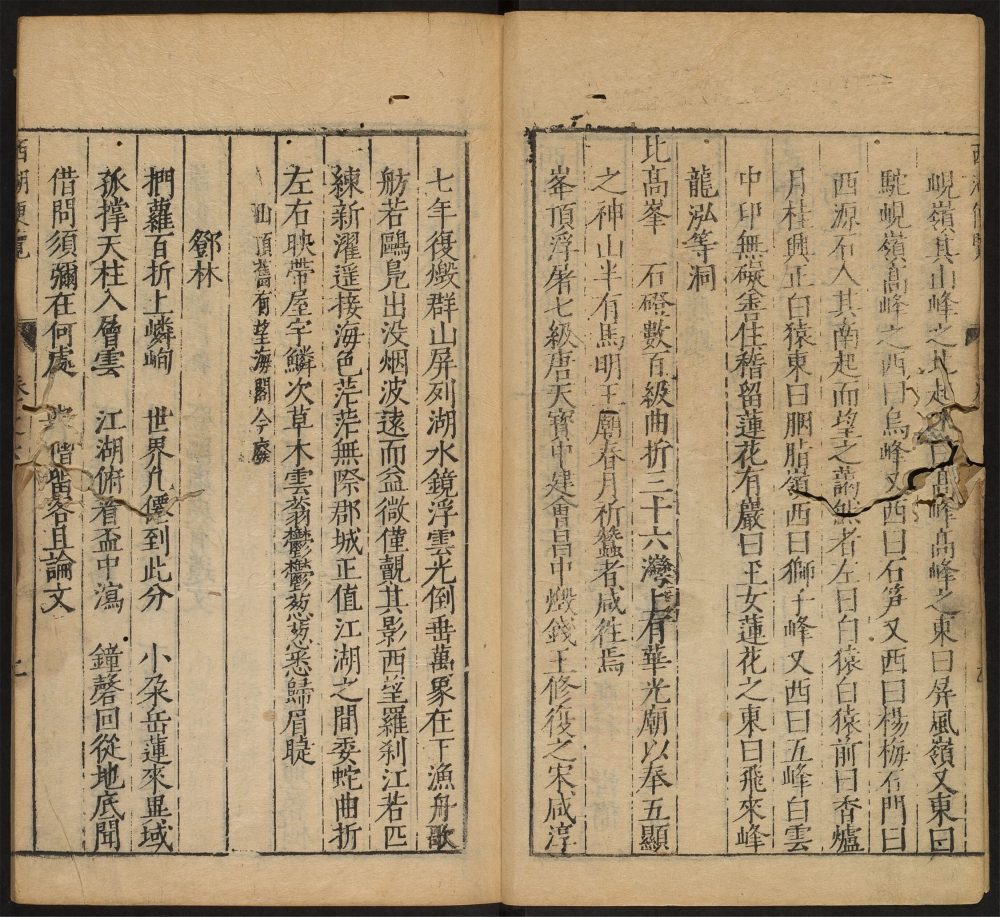 峴嶺其山峰之北起
曰高峰高峰之東曰屏風嶺又東曰
駝峴嶺高峰之西曰烏峰又西曰石笋又西曰楊梅石門曰
西源石人其南起而望之藹然者左曰白猿白猿前曰香爐
月桂興正白猿東曰胭脂嶺西曰獅子峰又西曰五峰白雲
中印無礙舍住稽留蓮花有巖曰玉女蓮花之東曰飛來峰
龍泓等洞
北高峯　石磴數百級曲折三十六灣上有華光廟以奉五顯
之神山半有馬明王廟春月祈蠶者咸徃焉
峯頂浮屠七級唐天寶中建會昌中燬錢王修復之宋咸淳
七年復燬群山屏列湖水鏡浮雲光倒垂萬象在下漁舟歌
舫若鷗鳧出没烟波遠而益微僅覩其影西望羅刹江若匹
練新濯遥接海色茫茫無際郡城正值江湖之間委蛇曲折
左右映帶屋宇鱗次草木雲蓊鬱鬱葱葱悉歸眉睫
山頂舊有望海閣今廢
鄧林
捫蘿百折上嶙峋　世界凡僊到此分　小朶岳蓮來異域
孤撑天柱入層雲　江湖俯看盃中瀉　鐘磬回從地底聞
借問須彌在何處　僧留客且論文
西湖便覽